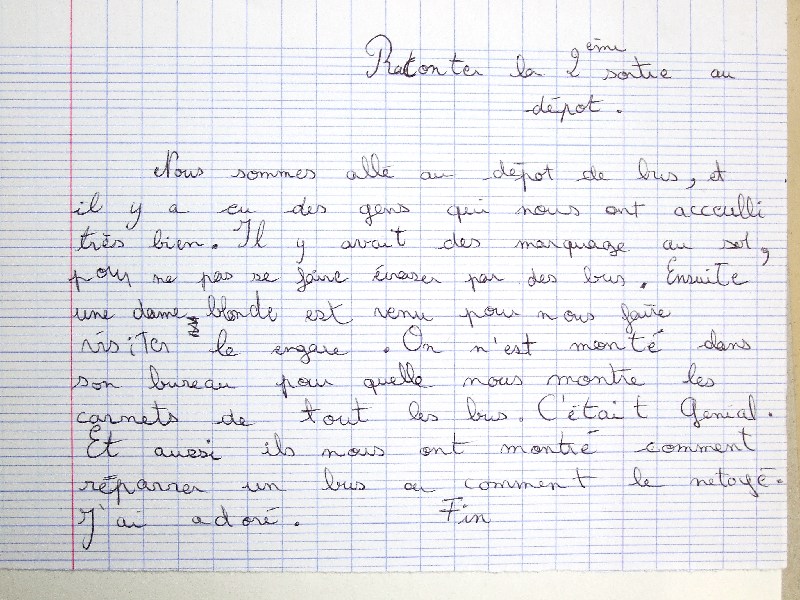 Raconter la 2ème sortie au
dépot.
Nous sommes allé au dépot de bus, et
il y a eu des gens qui nous ont acceulli
très bien. Il y avait des marquage au sol,
pour ne pas se faire écraser par des bus. Ensuite
une dame blonde est venu pour nous faire
visiter le engare. On n'est monté dans
son bureau pour quelle nous montre les
carnets de tout les bus. C'était Génial.
Et aussi ils nous ont montré comment
réparrer un bus ou comment le netoyé.
J'ai adoré. Fin